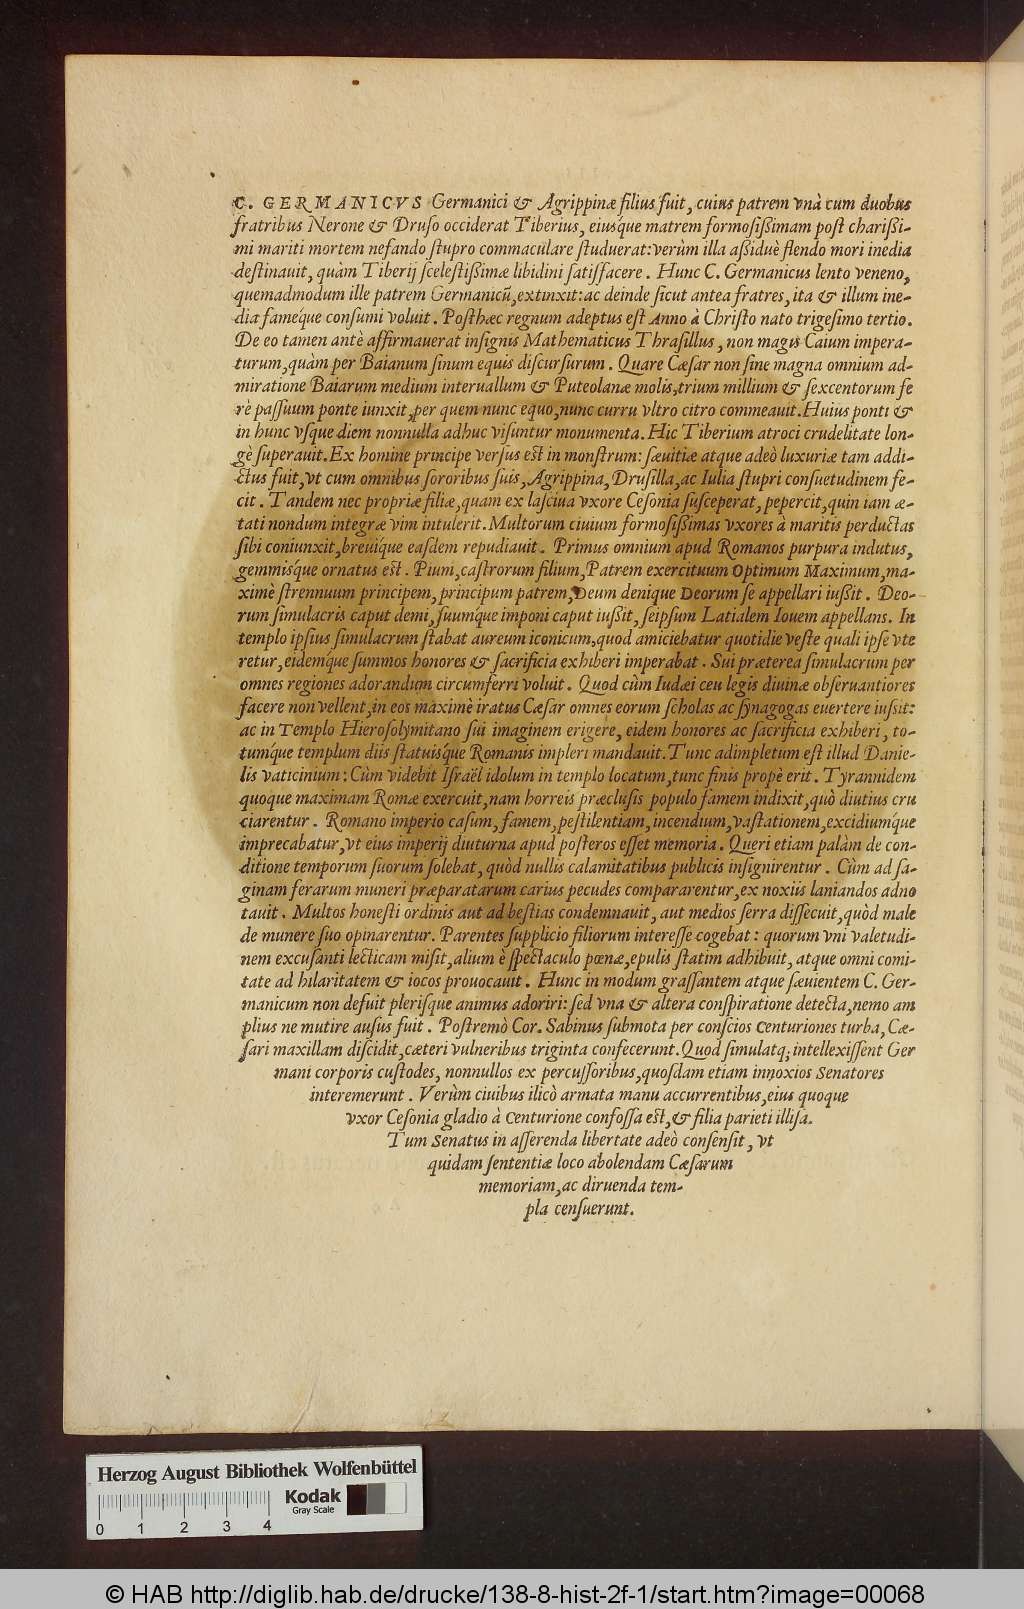 C. GERMANICVS Germanici & Agrippinæ filius fuit, cuius patrem vnà cum duobus
fratribus Nerone & Druſo occiderat Tiberius, eiusq́ue matrem formoſißimam poſt charißi-
mi mariti mortem nefando ſtupro commaculare ſtuduerat: verùm illa aßiduè flendo mori inedia
deſtinauit, quàm Tiberij ſceleſtißimæ libidini ſatiſfacere. Hunc C. Germanicus lento veneno,
quemadmodum ille patrem Germanicũ, extinxit: ac deinde ſicut antea fratres, ita & illum ine-
dia fameq́ue conſumi voluit. Poſthæc regnum adeptus eſt Anno à Chriſto nato trigeſimo tertio.
De eo tamen antè affirmauerat inſignis Mathematicus Thraſillus, non magis Caium impera-
turum, quàm per Baianum ſinum equis diſcurſurum. Quare Cæſar non ſine magna omnium ad-
miratione Baiarum medium interuallum & Puteolanæ molis, trium millium & ſexcentorum fe
rè paſſuum ponte iunxit, per quem nunc equo, nunc curru vltro citro commeauit. Huius ponti &
in hunc vſque diem nonnulla adhuc viſuntur monumenta. Hic Tiberium atroci crudelitate lon-
gè ſuperauit. Ex homine principe verſus eſt in monſtrum: ſæuitiæ atque adeò luxuriæ tam addi-
ctus fuit, vt cum omnibus ſororibus ſuis, Agrippina, Druſilla, ac Iulia ſtupri conſuetudinem fe-
cit. Tandem nec propriæ filiæ, quam ex laſciua vxore Ceſonia ſuſceperat, pepercit, quin iam æ-
tati nondum integræ vim intulerit. Multorum ciuium formoſißimas vxores à maritis perductas
ſibi coniunxit, breuiq́ue eaſdem repudiauit. Primus omnium apud Romanos purpura indutus,
gemmiſq́ue ornatus eſt. Pium, caſtrorum filium, Patrem exercituum Optimum Maximum, ma-
ximè ſtrennuum principem, principum patrem, Deum denique Deorum ſe appellari iußit. Deo-
rum ſimulacris caput demi, ſuumq́ue imponi caput iußit, ſeipſum Latialem Iouem appellans. In
templo ipſius ſimulacrum ſtabat aureum iconicum, quod amiciebatur quotidie veſte quali ipſe vte
retur, eidemq́ue ſummos honores & ſacrificia exhiberi imperabat. Sui præterea ſimulacrum per
omnes regiones adorandum circumferri voluit. Quod cùm Iudæi ceu legis diuinæ obſeruantiores
facere non vellent, in eos maximè iratus Cæſar omnes eorum ſcholas ac ſynagogas euertere iuſsit:
ac in Templo Hieroſolymitano ſui imaginem erigere, eidem honores ac ſacrificia exhiberi, to-
tumq́ue templum diis ſtatuiſq́ue Romanis impleri mandauit. Tunc adimpletum eſt illud Danie-
lis vaticinium: Cùm videbit Iſraël idolum in templo locatum, tunc finis propè erit. Tyrannidem
quoque maximam Romæ exercuit, nam horreis præcluſis populo famem indixit, quò diutius cru
ciarentur. Romano imperio caſum, famem, peſtilentiam, incendium, vaſtationem, excidiumq́ue
imprecabatur, vt eius imperij diuturna apud poſteros eſſet memoria. Queri etiam palàm de con-
ditione temporum ſuorum ſolebat, quòd nullis calamitatibus publicis inſignirentur. Cùm ad ſa-
ginam ferarum muneri præparatarum carius pecudes compararentur, ex noxiis laniandos adno
tauit. Multos honeſti ordinis aut ad beſtias condemnauit, aut medios ſerra diſſecuit, quòd male
de munere ſuo opinarentur. Parentes ſupplicio filiorum intereſſe cogebat: quorum vni valetudi-
nem excuſanti lecticam miſit, alium è ſpectaculo pœnæ, epulis ſtatim adhibuit, atque omni comi-
tate ad hilaritatem & iocos prouocauit. Hunc in modum graſſantem atque ſæuientem C. Ger-
manicum non defuit pleriſque animus adoriri: ſed vna & altera conſpiratione detecta, nemo am
plius ne mutire auſus fuit. Poſtremò Cor. Sabinus ſubmota per conſcios centuriones turba, Cæ-
ſari maxillam diſcidit, cæteri vulneribus triginta confecerunt. Quod ſimulatq; intellexiſſent Ger
mani corporis cuſtodes, nonnullos ex percuſſoribus, quoſdam etiam innoxios Senatores
interemerunt. Verùm ciuibus ilicò armata manu accurrentibus, eius quoque
vxor Ceſonia gladio à Centurione confoſſa eſt, & filia parieti illiſa.
Tum Senatus in aſſerenda libertate adeò conſenſit, vt
quidam ſententiæ loco abolendam Cæſarum
memoriam, ac diruenda tem-
pla cenſuerunt.
Herzog August Bibliothek Wolfenbüttel
Kodak
Gray Scale
0 1 2 3 4
© HAB http://diglib.hab.de/drucke/138-8-hist-2f-1/start.htm?image=00068